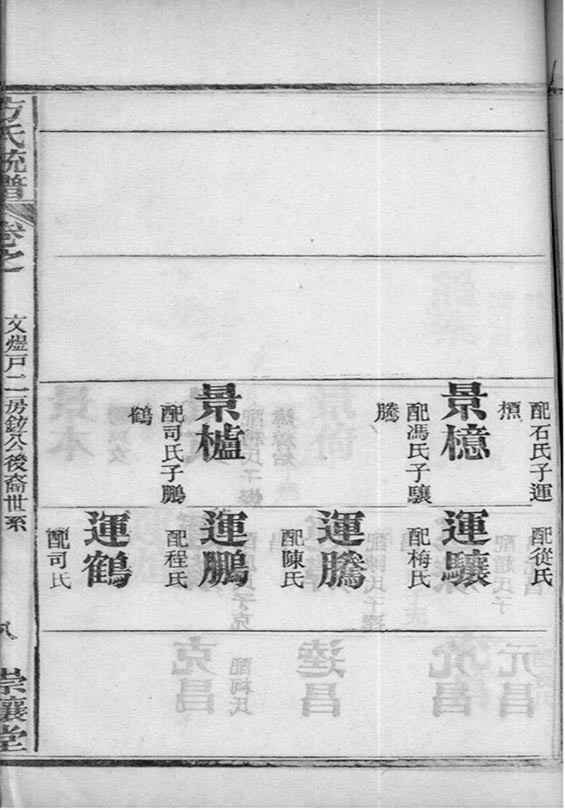 配石氏子運
檟
景檍
配馮氏子驤
騰
景櫨
配司氏子鵬
鶴
配從氏
運驤
配梅氏
運騰
配陳氏
運鵬
配程氏
運鶴
配司氏
方氏統譜
卷之
文煜戶二房鉉公後裔世系
崇讓堂